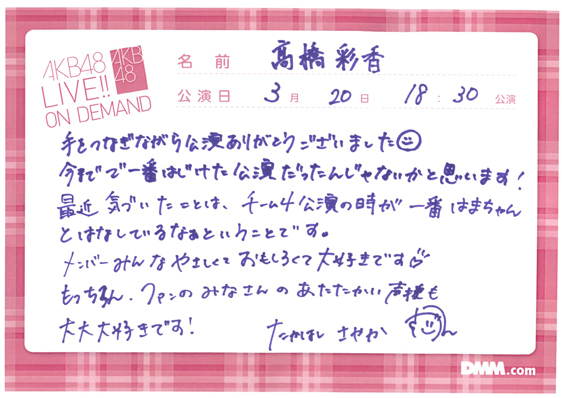 AKB48
LIVE!!
ON DEMAND
AKB
48
名前 高橋彩香
公演日 3月 20日 18:30 公演
手をつなぎながら公演ありがとうございました
今までで一番はじけた公演だったんじゃないかと思います!
最近気づいたことは、チーム4公演の時が一番はまちゃん
とはなしているなぁということです。
メンバーみんなやさしくておもしろくて大好きです
もっちろん、ファンのみなさんのあたたかい声援も
大大大好きです!
たかはし さやか
DMM.com